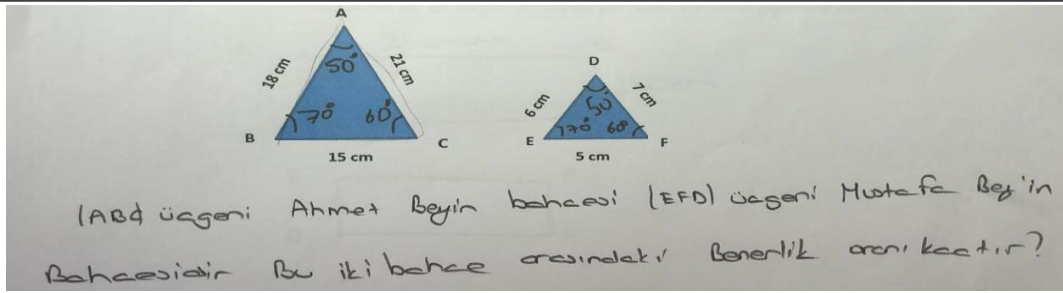 A
18 cm
50°
21 cm
70°
60°
B
C
15 cm
D
6 cm
50°
7 cm
70°
60°
E
F
5 cm
(ABC) üçgeni Ahmet Beyin bahçesi (EFD) üçgeni Mustafa Bey'in
Bahçesidir Bu iki bahçe arasındaki Benzerlik oranı kaçtır?